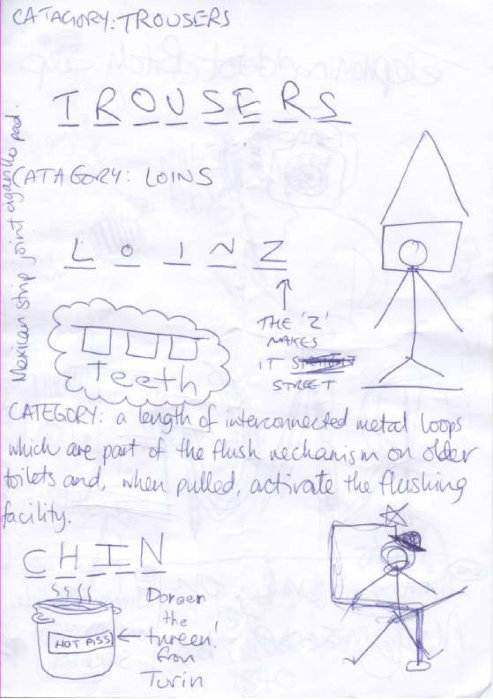 CATAGORY: TROUSERS
T R O U S E R S
CATAGORY: LOINS
L O I N Z
THE 'Z'
MAKES
IT
STREET
Teeth
Mexican strip joint
CATEGORY: a length of interconnected metal loops
which are part of the flush mechanism on older
toilets and, when pulled, activate the flushing
facility.
C H I N
HOT PISS
Doreen
the
tureen!
from
Turin